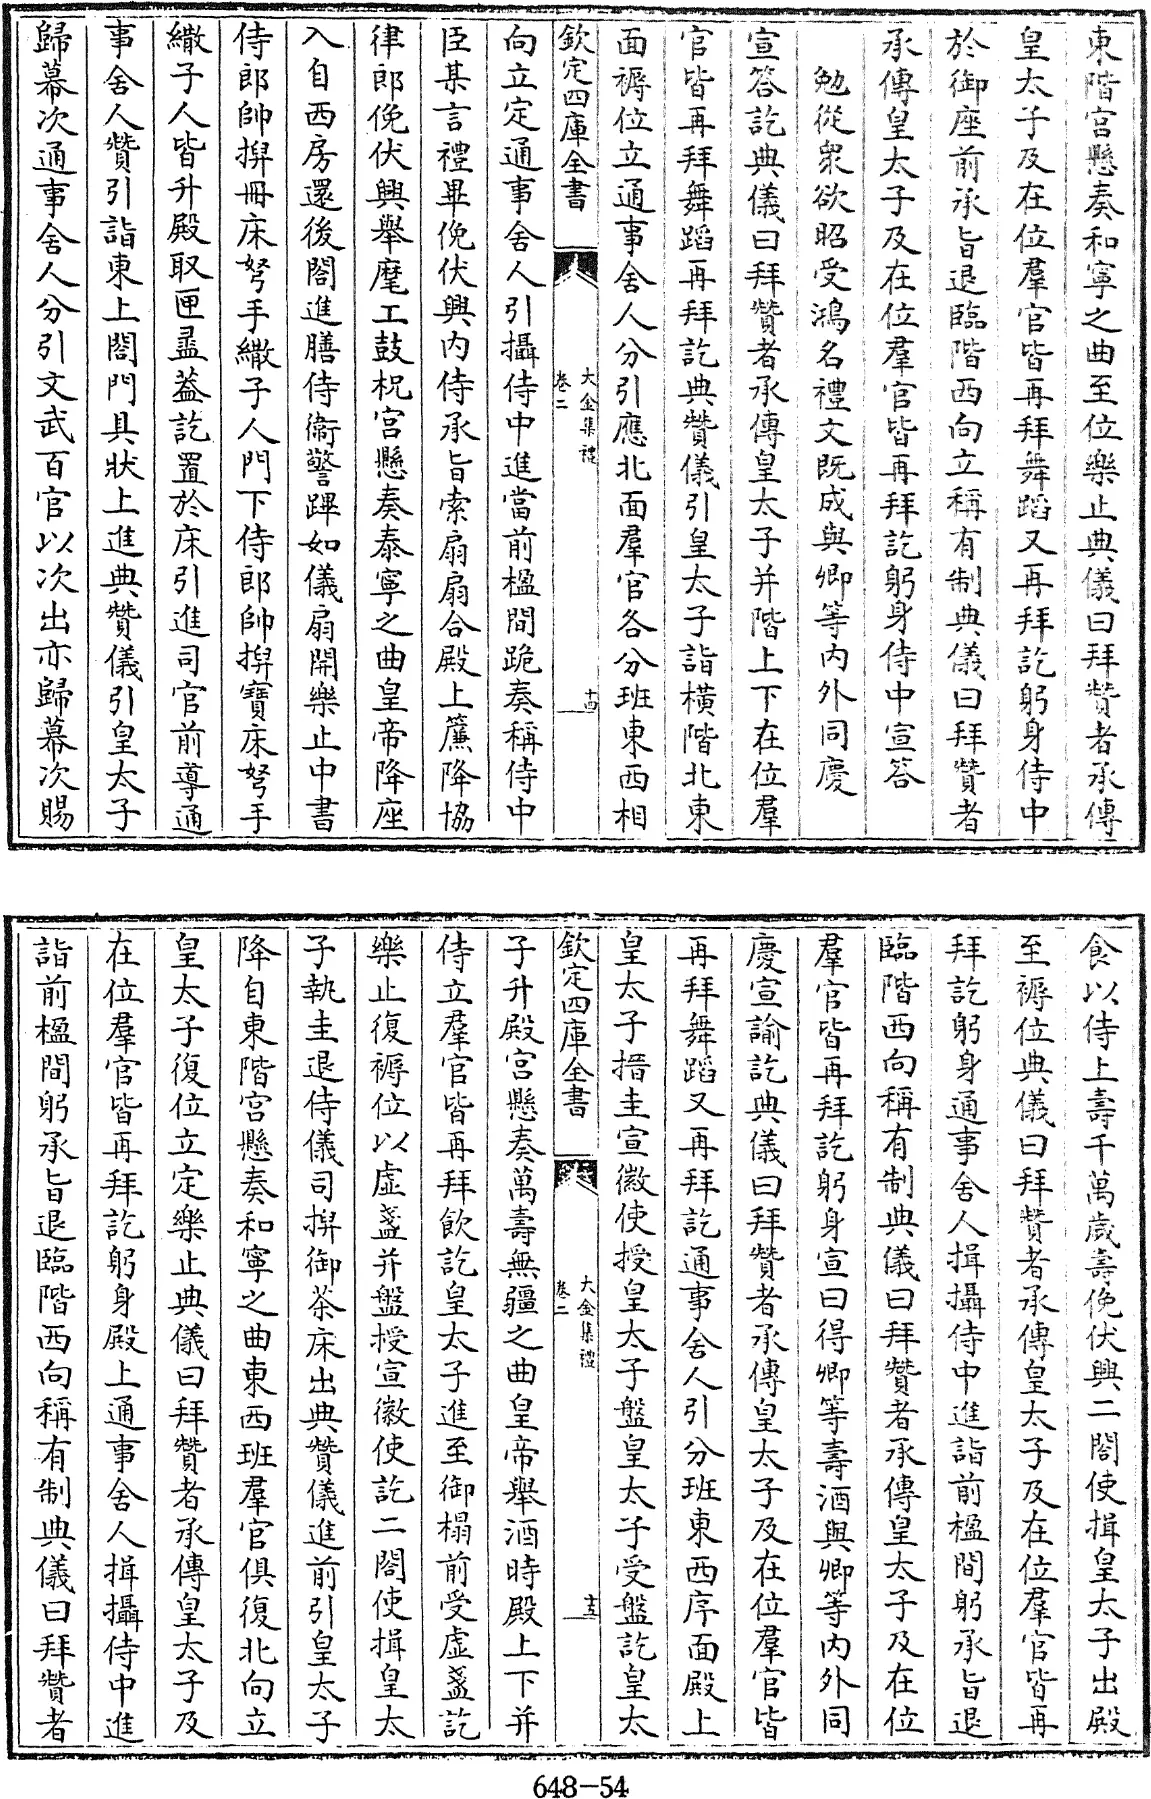 東階宮懸奏和寧之曲至位樂止典儀曰拜贊者承傳
皇太子及在位羣官皆再拜舞蹈又再拜訖躬身侍中
於御座前承旨退臨階西向立稱有制典儀曰拜贊者
承傳皇太子及在位羣官皆再拜訖躬身侍中宣答
勉從衆欲昭受鴻名禮文既成與卿等内外同慶
宣答訖典儀曰拜贊者承傳皇太子并階上下在位羣
官皆再拜舞蹈再拜訖典贊儀引皇太子詣横階北東
面褥位立通事舍人分引應北面羣官各分班東西相
欽定四庫全書
大金集禮
卷二
十四
向立定通事舍人引攝侍中進當前楹間跪奏稱侍中
臣某言禮畢俛伏興内侍承旨索扇扇合殿上簾降協
律郎俛伏興舉麾工鼓柷宮懸奏泰寧之曲皇帝降座
入自西房還後閤進膳侍衞警蹕如儀扇開樂止中書
侍郎帥捧冊床弩手繖子人門下侍郎帥捧寶床弩手
繖子人皆升殿取匣盝葢訖置於床引進司官前導通
事舍人贊引詣東上閤門具狀上進典贊儀引皇太子
歸幕次通事舍人分引文武百官以次出亦歸幕次賜
食以侍上壽千萬歲壽俛伏興二閤使揖皇太子出殿
至褥位典儀曰拜贊者承傳皇太子及在位羣官皆再
拜訖躬身通事舍人揖攝侍中進詣前楹間躬承旨退
臨階西向稱有制典儀曰拜贊者承傳皇太子及在位
羣官皆再拜訖躬身宣曰得卿等壽酒與卿等内外同
慶宣諭訖典儀曰拜贊者承傳皇太子及在位羣官皆
再拜舞蹈又再拜訖通事舍人引分班東西序面殿上
皇太子搢圭宣徽使授皇太子盤皇太子受盤訖皇太
欽定四庫全書
大金集禮
卷二
十五
子升殿宮懸奏萬壽無疆之曲皇帝舉酒時殿上下并
侍立羣官皆再拜飲訖皇太子進至御榻前受虛盞訖
樂止復褥位以虛盞并盤授宣徽使訖二閤使揖皇太
子執圭退侍儀司捧御茶床出典贊儀進前引皇太子
降自東階宮懸奏和寧之曲東西班羣官俱復北向立
皇太子復位立定樂止典儀曰拜贊者承傳皇太子及
在位羣官皆再拜訖躬身殿上通事舍人揖攝侍中進
詣前楹間躬承旨退臨階西向稱有制典儀曰拜贊者
648-54